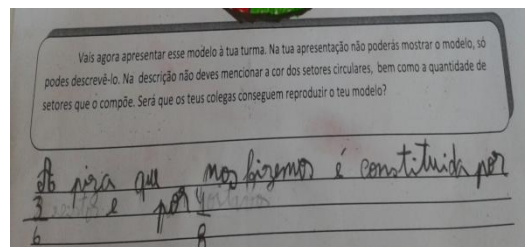 Vais agora apresentar esse modelo à tua turma. Na tua apresentação não poderás mostrar o modelo, só
podes descrevê-lo. Na descrição não deves mencionar a cor dos setores circulares, bem como a quantidade de
setores que o compõe. Será que os teus colegas conseguem reproduzir o teu modelo?
A piza que nos fizemos é constituida por
3 e por 4
6 8